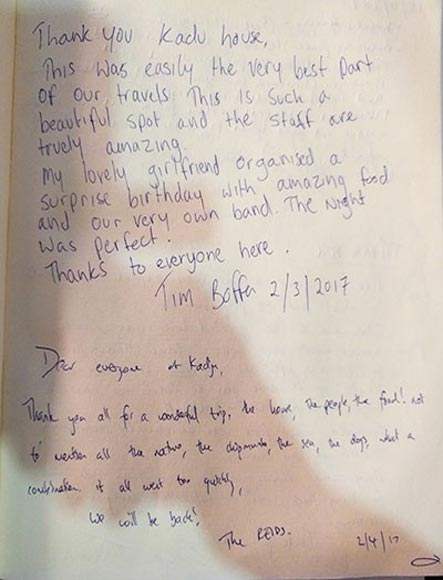 Thank you Kadu house,
This was easily the very best part
of our travels. This is such a
beautiful spot and the staff are
truely amazing.
My lovely girlfriend organised a
surprise birthday with amazing food
and our very own band. The Night
was perfect.
Thanks to everyone here.
Tim Boffa 2/3/2017
Dear everyone at Kadju,
Thank you all for a wonderful trip, the house, the people, the food! not
to mention all the nature, the chipmunks, the sea, the dogs, what a
combination. it all went too quickly,
We will be back!
The REIDS. 2/4/17